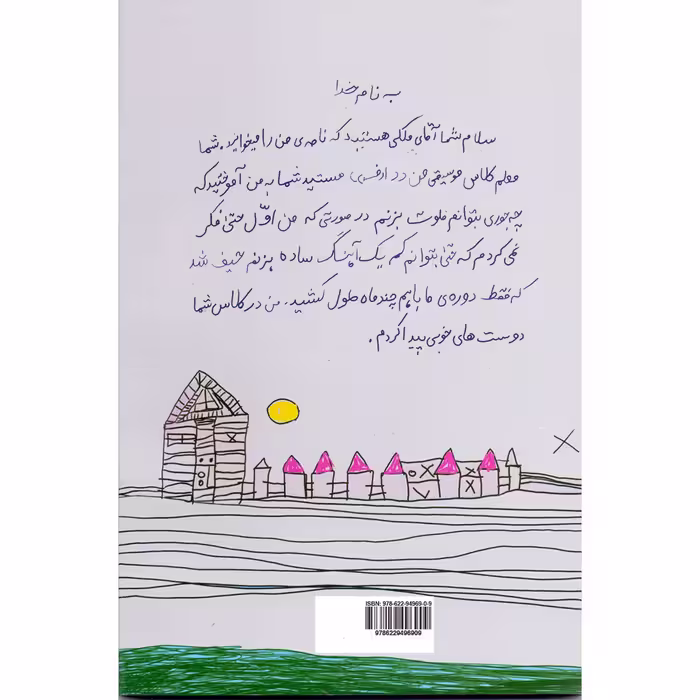 به نام خدا
سلام شما آقای ملکی هستید که نامه‌ی من را میخوانید. شما
معلم کلاس موسیقی من در هستید شما به من آموختید که
چه جوری بتوانم فلوت بزنم در صورتی که من اوّل حتی فکر
نمی کردم که حتی بتوانم که یک آهنگ ساده بزنم حیف شد
که فقط دوره‌ی ما باهم چند ماه طول کشید. من در کلاس شما
دوست های خوبی پیدا کردم.
ISBN: 978-622-94969-0-9
9786229496909